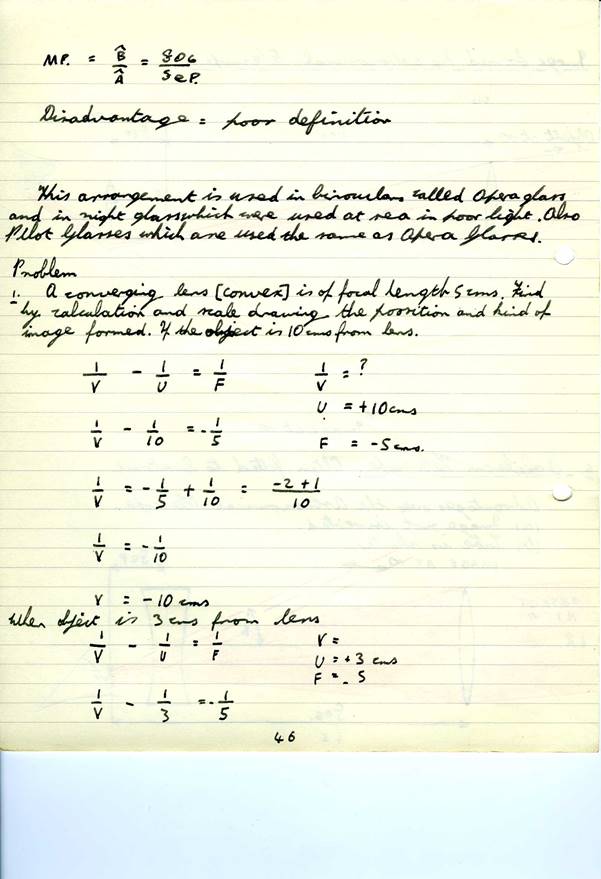 MP. = B̂/Â = FOG/SeP.
Disadvantage = poor definition
This arrangement is used in binoculars called Opera glass
and in night glass which were used at sea in poor light. Also
Pilot Glasses which are used the same as Opera Glasses.
Problem
1. A converging lens [convex] is of focal length 5 cms. Find
by calculation and scale drawing the position and kind of
image formed. If the object is 10 cms from lens.
1/V - 1/U = 1/F    1/V = ?
U = +10 cms
1/V - 1/10 = -1/5    F = -5 cms.
1/V = -1/5 + 1/10 = -2+1/10
1/V = -1/10
V = -10 cms
When object is 3 cms from lens
1/V - 1/U = 1/F    V =
U = +3 cms
F = -5
1/V - 1/3 = -1/5
46